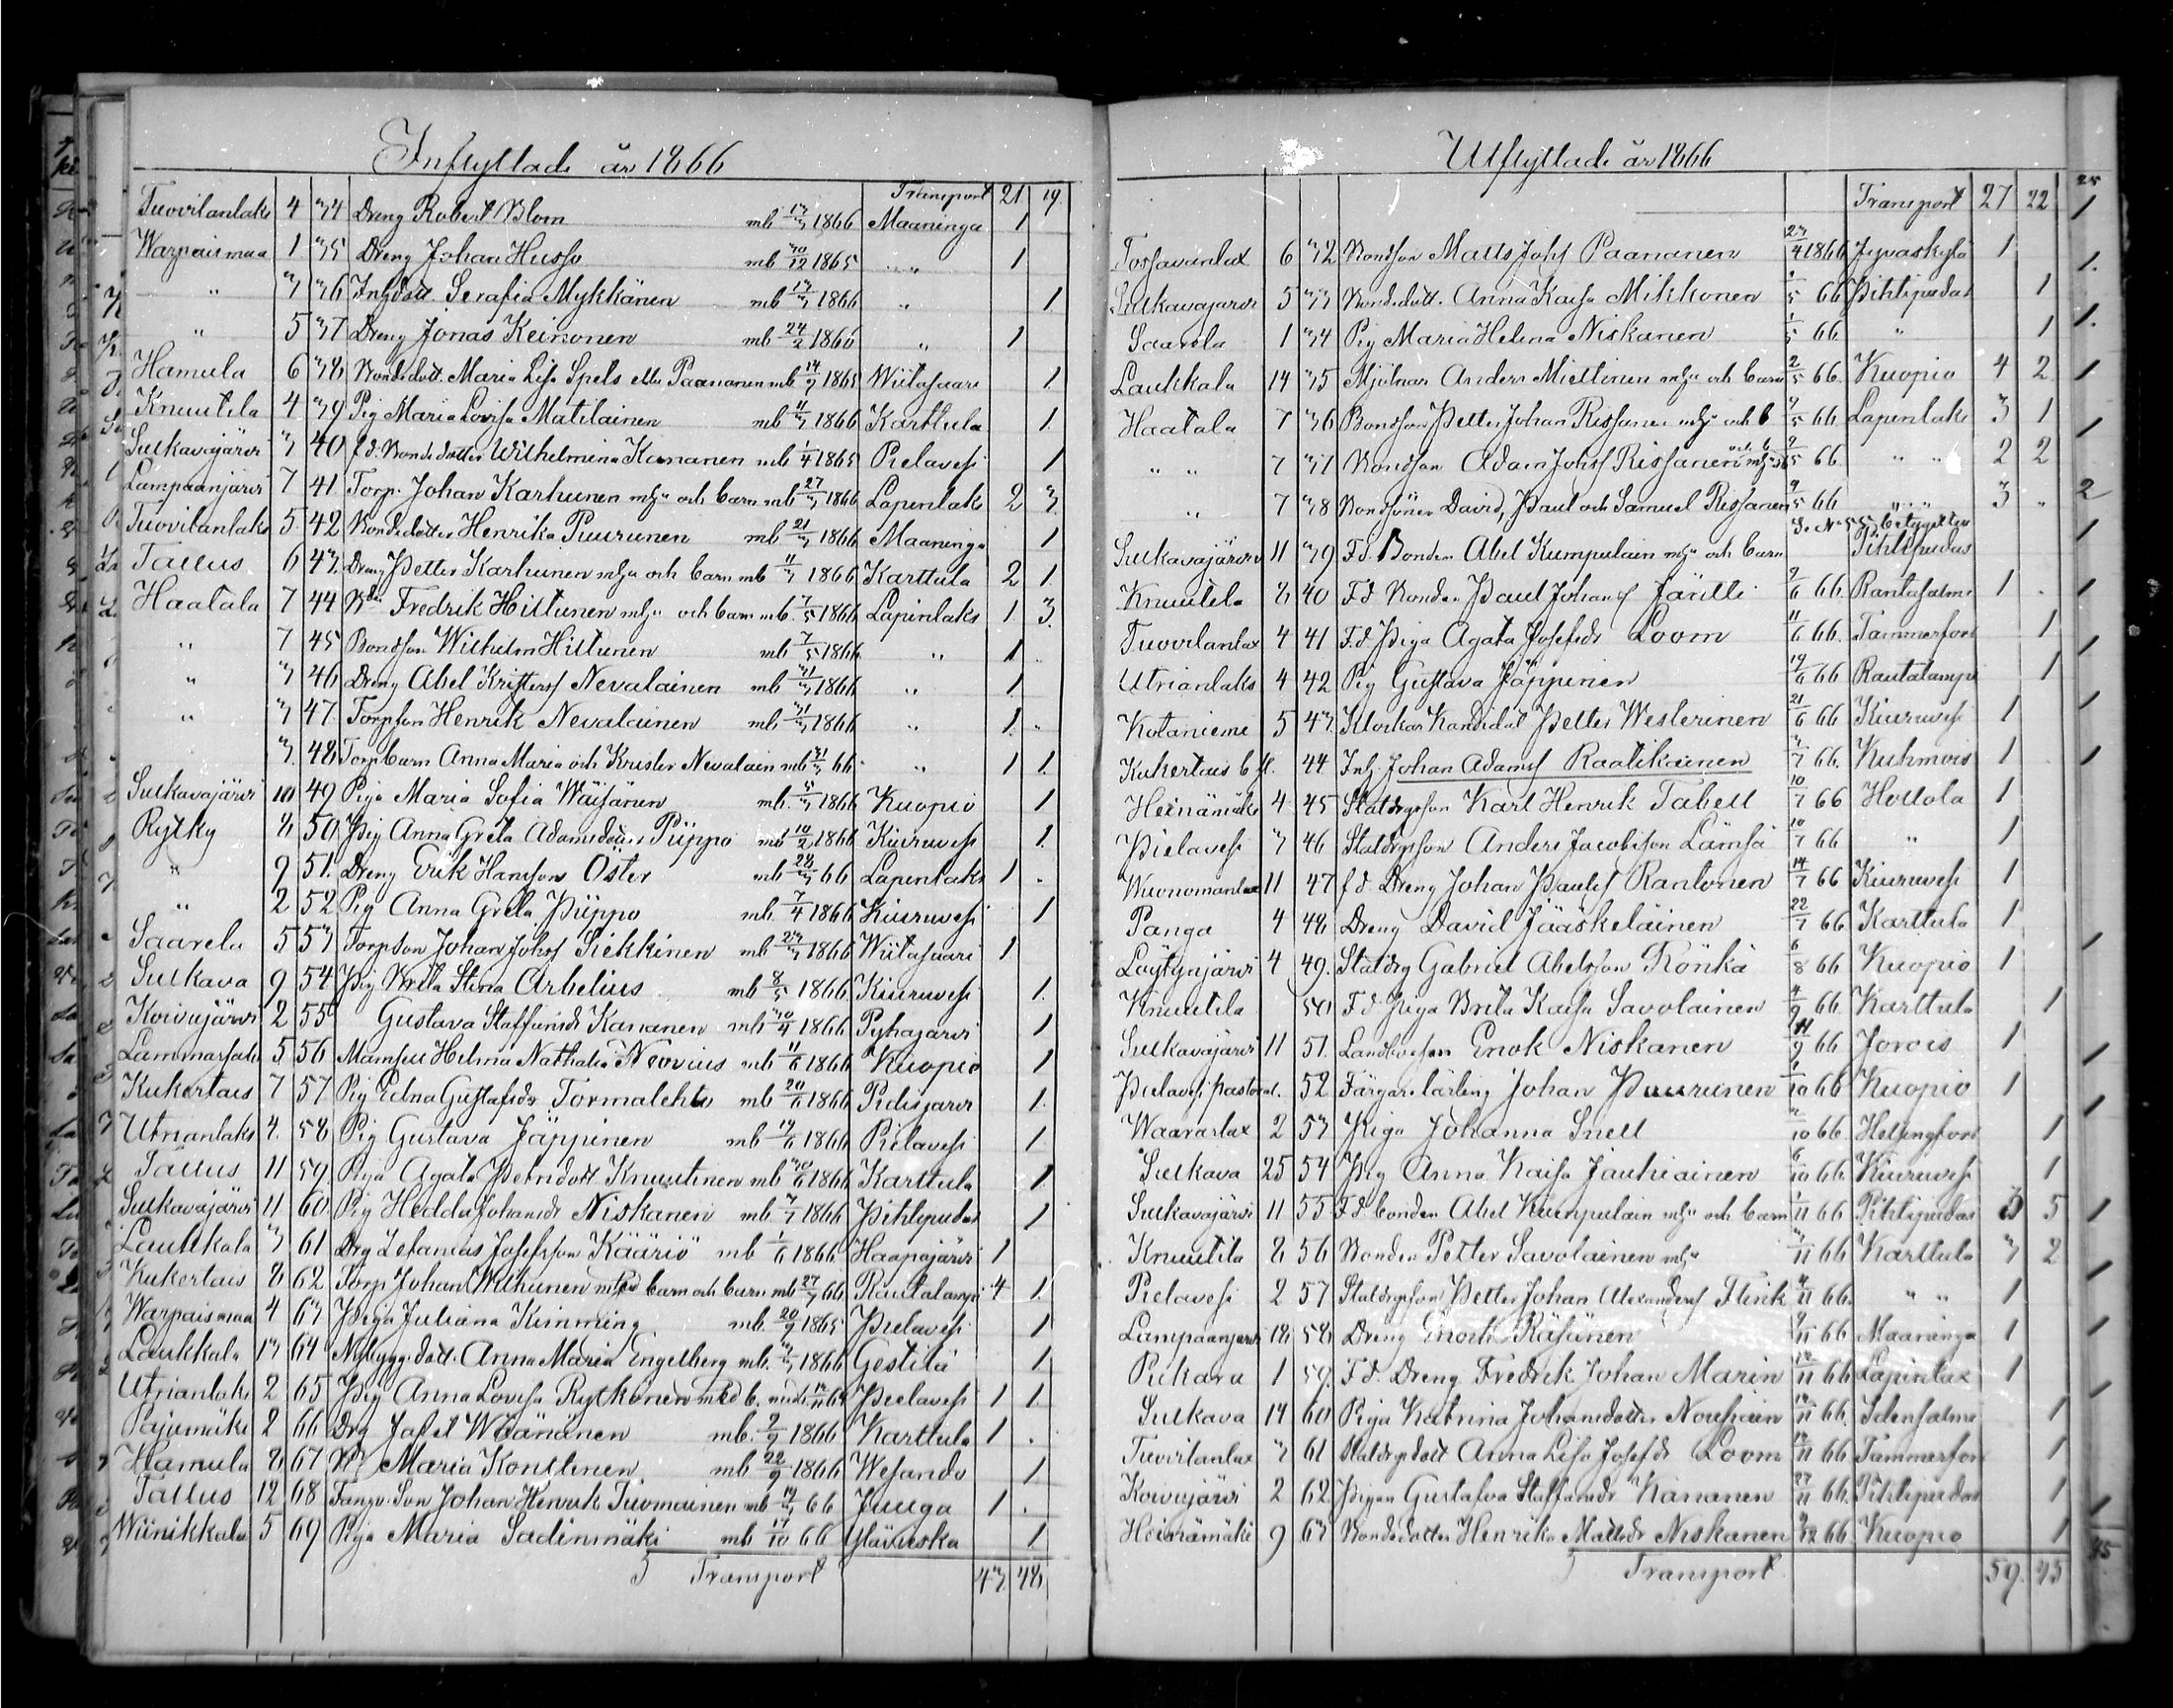 Inflyttade år 1866
Transport 21 19
Tuovilanlaks 4 34 Dreng Robert Blom mb 13/3 1866 Maaninga 1
Warpaismaa 1 35 Dreng Johan Husso mb 30/12 1865 " 1
" 3 36 Inhdott. Serafia Mykkänen mb 13/3 1866 " 1
" 5 37 Dreng Jonas Keinonen mb 24/2 1866 " 1
Hamula 6 38 Bondedott. Maria Lisa Spels eller Paananen mb 14/9 1865 Wiitasaari 1
Knuutila 4 39 Pig Maria Lovisa Matilainen mb 11/3 1866 Karttula 1
Sulkavajärvi 3 40 f.d. Bondedotter Wilhelmina Kananen mb 1/4 1865 Pielavesi 1
Lampaanjärvi 7 41 Torp. Johan Karhunen m. h:u och barn mb 27/3 1866 Lapinlaks 2 3
Tuovilanlaks 5 42 Bondedotter Henrika Puurunen mb 21/3 1866 Maaninga 1
Tallus 6 43 Dreng Petter Karhunen m. h:u och barn mb 11/3 1866 Karttula 2 1
Haatala 7 44 Bdn Fredrik Hiltunen m. h:u och barn mb 7/5 1866 Lapinlaks 1 3
" 7 45 Bondson Wilhelm Hiltunen mb 7/5 1866 " 1
" 3 46 Dreng Abel Kristerss Nevalainen mb 31/3 1866 " 1
" 3 47 Torpson Henrik Nevalainen mb 31/3 1866 " 1
3 48 Torpbarn Anna Maria och Krister Nevalain mb 31/3 66 " 1 1
Sulkavajärvi 10 49 Piga Maria Sofia Wäisänen mb 5/3 1866 Kuopio 1
Rytky 8 50 Pig Anna Greta Adamsdotter Piippo mb 10/2 1866 Kiuruvesi 1
" 9 51 Dreng Erik Hansson Öster mb 28/3 66 Lapinlaks 1
" 2 52 Pig Anna Greta Piippo mb 7/4 1866 Kiuruvesi 1
Saarela 5 53 Torpson Johan Johss Siekkinen mb 23/3 1866 Wiitasaari 1
Sulkava 9 54 Pig Brita Stina Arhelius mb 8/5 1866 Kiuruvesi 1
Koivujärvi 2 55 Gustava Staffansdr Kananen mb 30/4 1866 Pyhäjärvi 1
Lammassalo 5 56 Mamsell Helma Nathalia Neovius mb 11/6 1866 Kuopio 1
Kukertais 7 57 Pig Edna Gustafsdr Tormalehto mb 20/6 1866 Pidisjärvi 1
Utrianlaks 4 58 Pig Gustava Jäppinen mb 19/6 1866 Pielavesi 1
Tallus 11 59 Piga Agata Petridott Knuutinen mb 30/6 1866 Karttula 1
Sulkavajärvi 11 60 Pig Hedda Johansdr Niskanen mb 7/7 1866 Pihlipudas 1
Laukkala 3 61 Drg Zefanias Josefsson Kääriö mb 1/6 1866 Haapajärvi 1
Kukertais 8 62 Torp. Johan Wilhunen barn och barn mb 27/7 66 Rautalampi 4 1
Warpaismaa 4 63 Piga Juliana Kimming mb 20/9 1865 Pielavesi 1
Laukkala 13 64 Nybygg. dott. Anna Maria Engelberg mb 3/3 1866 Gestilä 1
Utrianlaks 2 65 Pig Anna Lovisa Rytkönen med b. Pielavesi 1 1
Pajumäki 2 66 Drg Jafet Wäänänen mb 2/9 1866 Karttula 1
Hamula 8 67 Maria Konttinen mb 22/9 1866 Wesando 1
Tallus 12 68 Son Johan Henrik Tuomainen mb 19/3 66 Juuga 1
Wiinikkala 5 69 Piga Maria Sadinmäki mb 17/10 66 Ylävieska 1
Transport 43 48
Utflyttade år 1866
Transport 27 22
Tossavanlax 6 32 Bondson Matts Johss Paananen 23/4 1866 Jyväskylä 1
Sulkavajärvi 5 33 Bondedott. Anna Kaisa Mikkonen 1/5 66 Pihlipudas 1
Saarela 1 34 Pig Maria Helena Niskanen 1/5 66 " 1
Laukkala 14 35 Mjölnar Anders Miettinen m. h:u och barn 2/5 66 Kuopio 4 2
Haatala 7 36 Bondson Petter Johan Rissanen m. h:u och b 7/5 66 Lapinlaks 3 1
" " 7 37 Bondson Adam Johss Rissanen m. h:u och b 7/5 66 " " 2 2
" 7 38 Bondsöner David, Paul och Samuel Rissanen 9/5 66 " " 3 "
Se No 55 betygetten
Sulkavajärvi 11 39 F.d. Bonden Abel Kumpulain m. h:u och barn Pihlipudas
Knuutila 8 40 F.d. Bonden Paul Johanss Jäntti 2/6 66 Rantasalmi 1
Tuovilanlax 4 41 F.d. Piga Agata Josefsdr Loom 11/6 66 Tammerfors 1
Utrianlaks 4 42 Pig Gustava Jäppinen 19/6 66 Rautalampi 1
Kotaniemi 5 43 Klockar Kandidat Petter Westerinen 21/6 66 Kiuruvesi 1
Kukertais b fl. 44 Inh. Johan Adamss Raatikainen 3/7 66 Kuhmois 1
Heinämäki 4 45 Staldrgsson Karl Henrik Tabell 10/7 66 Hollola 1
Pielavesi 3 46 Staldrgsson Anders Jacobsson Lämsä 10/7 66 " 1
Wuonomanlax 11 47 f.d. Dreng Johan Paulss Rantonen 14/7 66 Kiuruvesi 1
Panga 4 48 Dreng David Jääskeläinen 22/7 66 Karttula 1
Löytynjärvi 4 49 Staldrg Gabriel Abelsson Rönkä 6/8 66 Kuopio 1
Knuutila 50 F.d. Piga Brita Kaisa Savolainen 4/9 66 Karttula 1
Sulkavajärvi 11 51 Enok Niskanen 11/9 66 Jorois 1
Pielavesi pastorat. 52 Färgarelärling Johan Puurunen 1/10 66 Kuopio 1
Waaraslax 2 53 Piga Johanna Snell 2/10 66 Helsingfors 1
Sulkava 25 54 Pig Anna Kaisa Jauhiainen 6/10 66 Kiuruvesi 1
Sulkavajärvi 11 55 F.d. bonden Abel Kumpulain m. h:u och barn 1/11 66 Pihlipudas 3 5
Knuutila 8 56 Bonden Petter Savolainen m. h:u 3/11 66 Karttula 3 2
Pielavesi 2 57 Staldrgsson Petter Johan Alexanderss Flink 4/11 66 " " 1
Lampaanjärvi 18 58 Dreng Enock Räsänen 9/11 66 Maaninga 1
Pukara 1 59 F.d. Dreng Fredrik Johan Marin 12/11 66 Lapinlax 1
Sulkava 14 60 Piga Katrina Johansdotter Nousiain 12/11 66 Idensalmi 1
Tuovilanlax 3 61 Staldrgdott Anna Lisa Josefsdr Loom 12/11 66 Tammerfors 1
Koivujärvi 2 62 Pigan Gustafva Staffansdr Kananen 27/11 66 Pihlipudas 1
Heinämäki 9 63 Bondedotter Henrika Mattsdr Niskanen 3/12 66 Kuopio 1
Transport 59 45